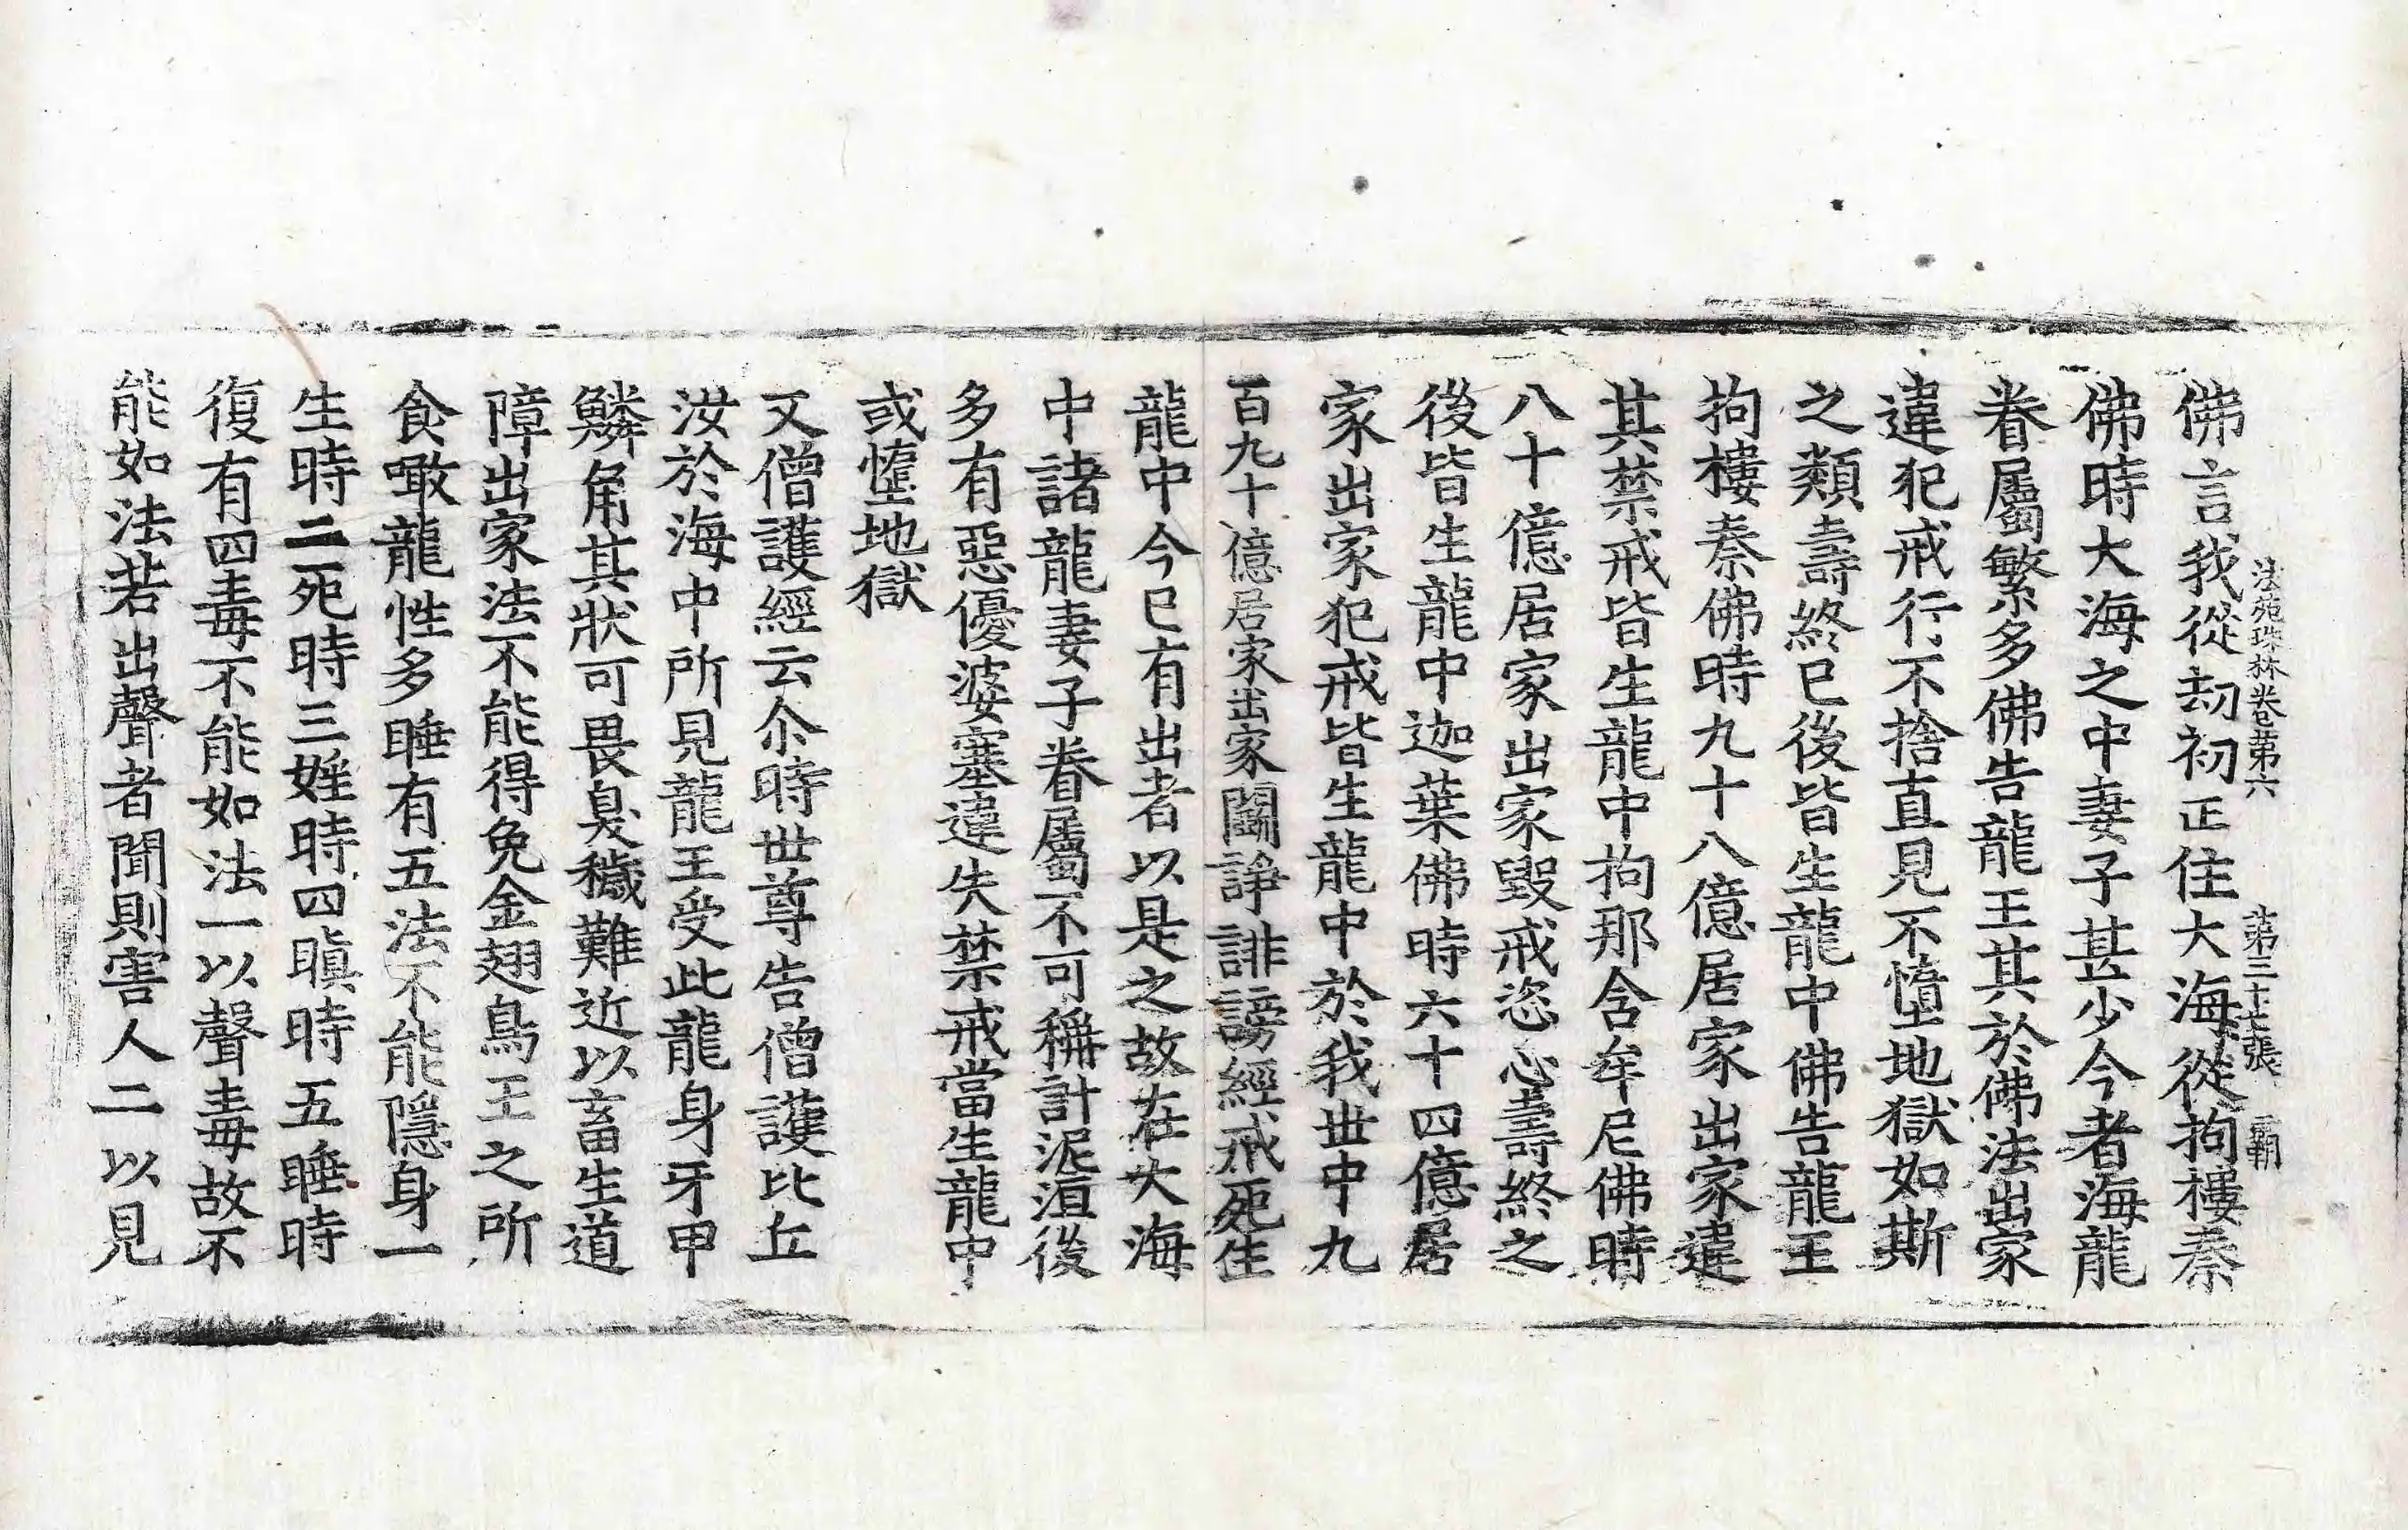 法苑珠林卷第六　第三十七張　霸
佛言我從劫初正住大海從拘樓秦
佛時大海之中妻子甚少今者海龍
眷屬繁多佛告龍王其於佛法出家
違犯戒行不捨直見不墯地獄如斯
之類壽終已後皆生龍中佛告龍王
拘樓秦佛時九十八億居家出家違
其禁戒皆生龍中拘那含牟尼佛時
八十億居家出家毀戒恣心壽終之
後皆生龍中迦葉佛時六十四億居
家出家犯戒皆生龍中於我世中九
百九十億居家出家鬪諍誹謗經戒死生
龍中今已有出者以是之故在大海
中諸龍妻子眷屬不可稱計泥洹後
多有惡優婆塞違失禁戒當生龍中
或墯地獄
又僧護經云尒時世尊告僧護比丘
汝於海中所見龍王受此龍身牙甲
鱗角其狀可畏臭穢難近以畜生道
障出家法不能得免金翅鳥王之所
食噉龍性多睡有五法不能隱身一
生時二死時三婬時四瞋時五睡時
復有四毒不能如法一以聲毒故不
能如法若出聲者聞則害人二以見